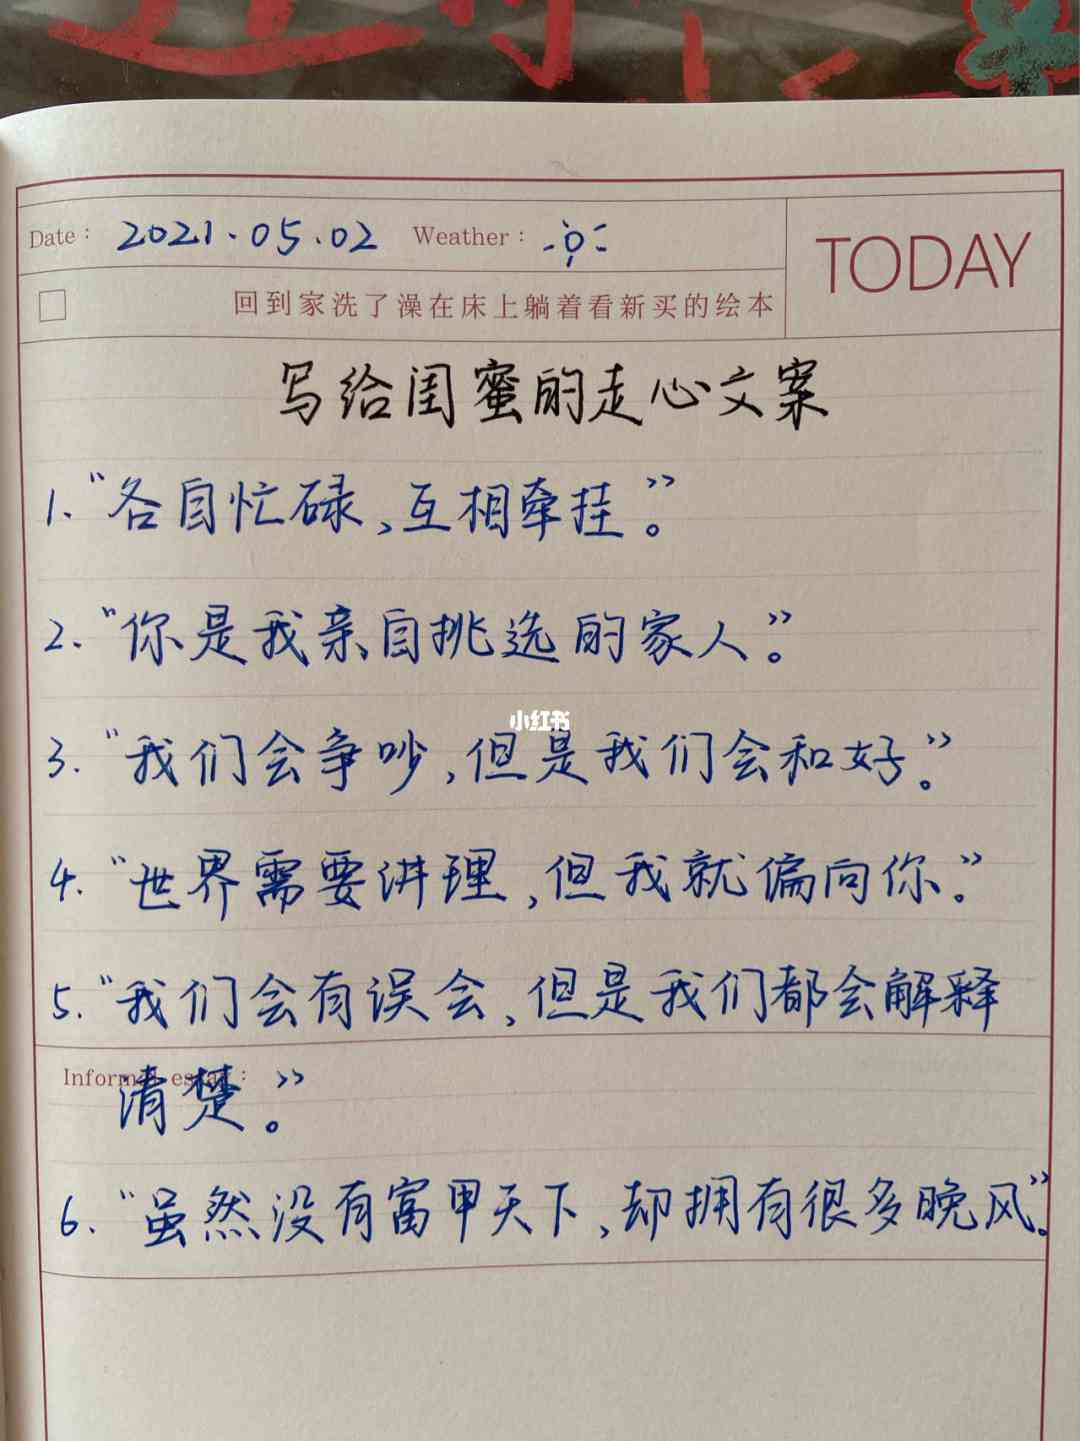 Date: 2021.05.02 Weather:
TODAY
回到家洗了澡在床上躺着看新买的绘本
写给闺蜜的走心文案
1.“各自忙碌,互相牵挂。”
2.“你是我亲自挑选的家人。”
小红书
3.“我们会争吵,但是我们会和好。”
4.“世界需要讲理,但我就偏向你。”
5.“我们会有误会,但是我们都会解释
Informal essay:
清楚。”
6.“虽然没有富甲天下,却拥有很多晚风”。